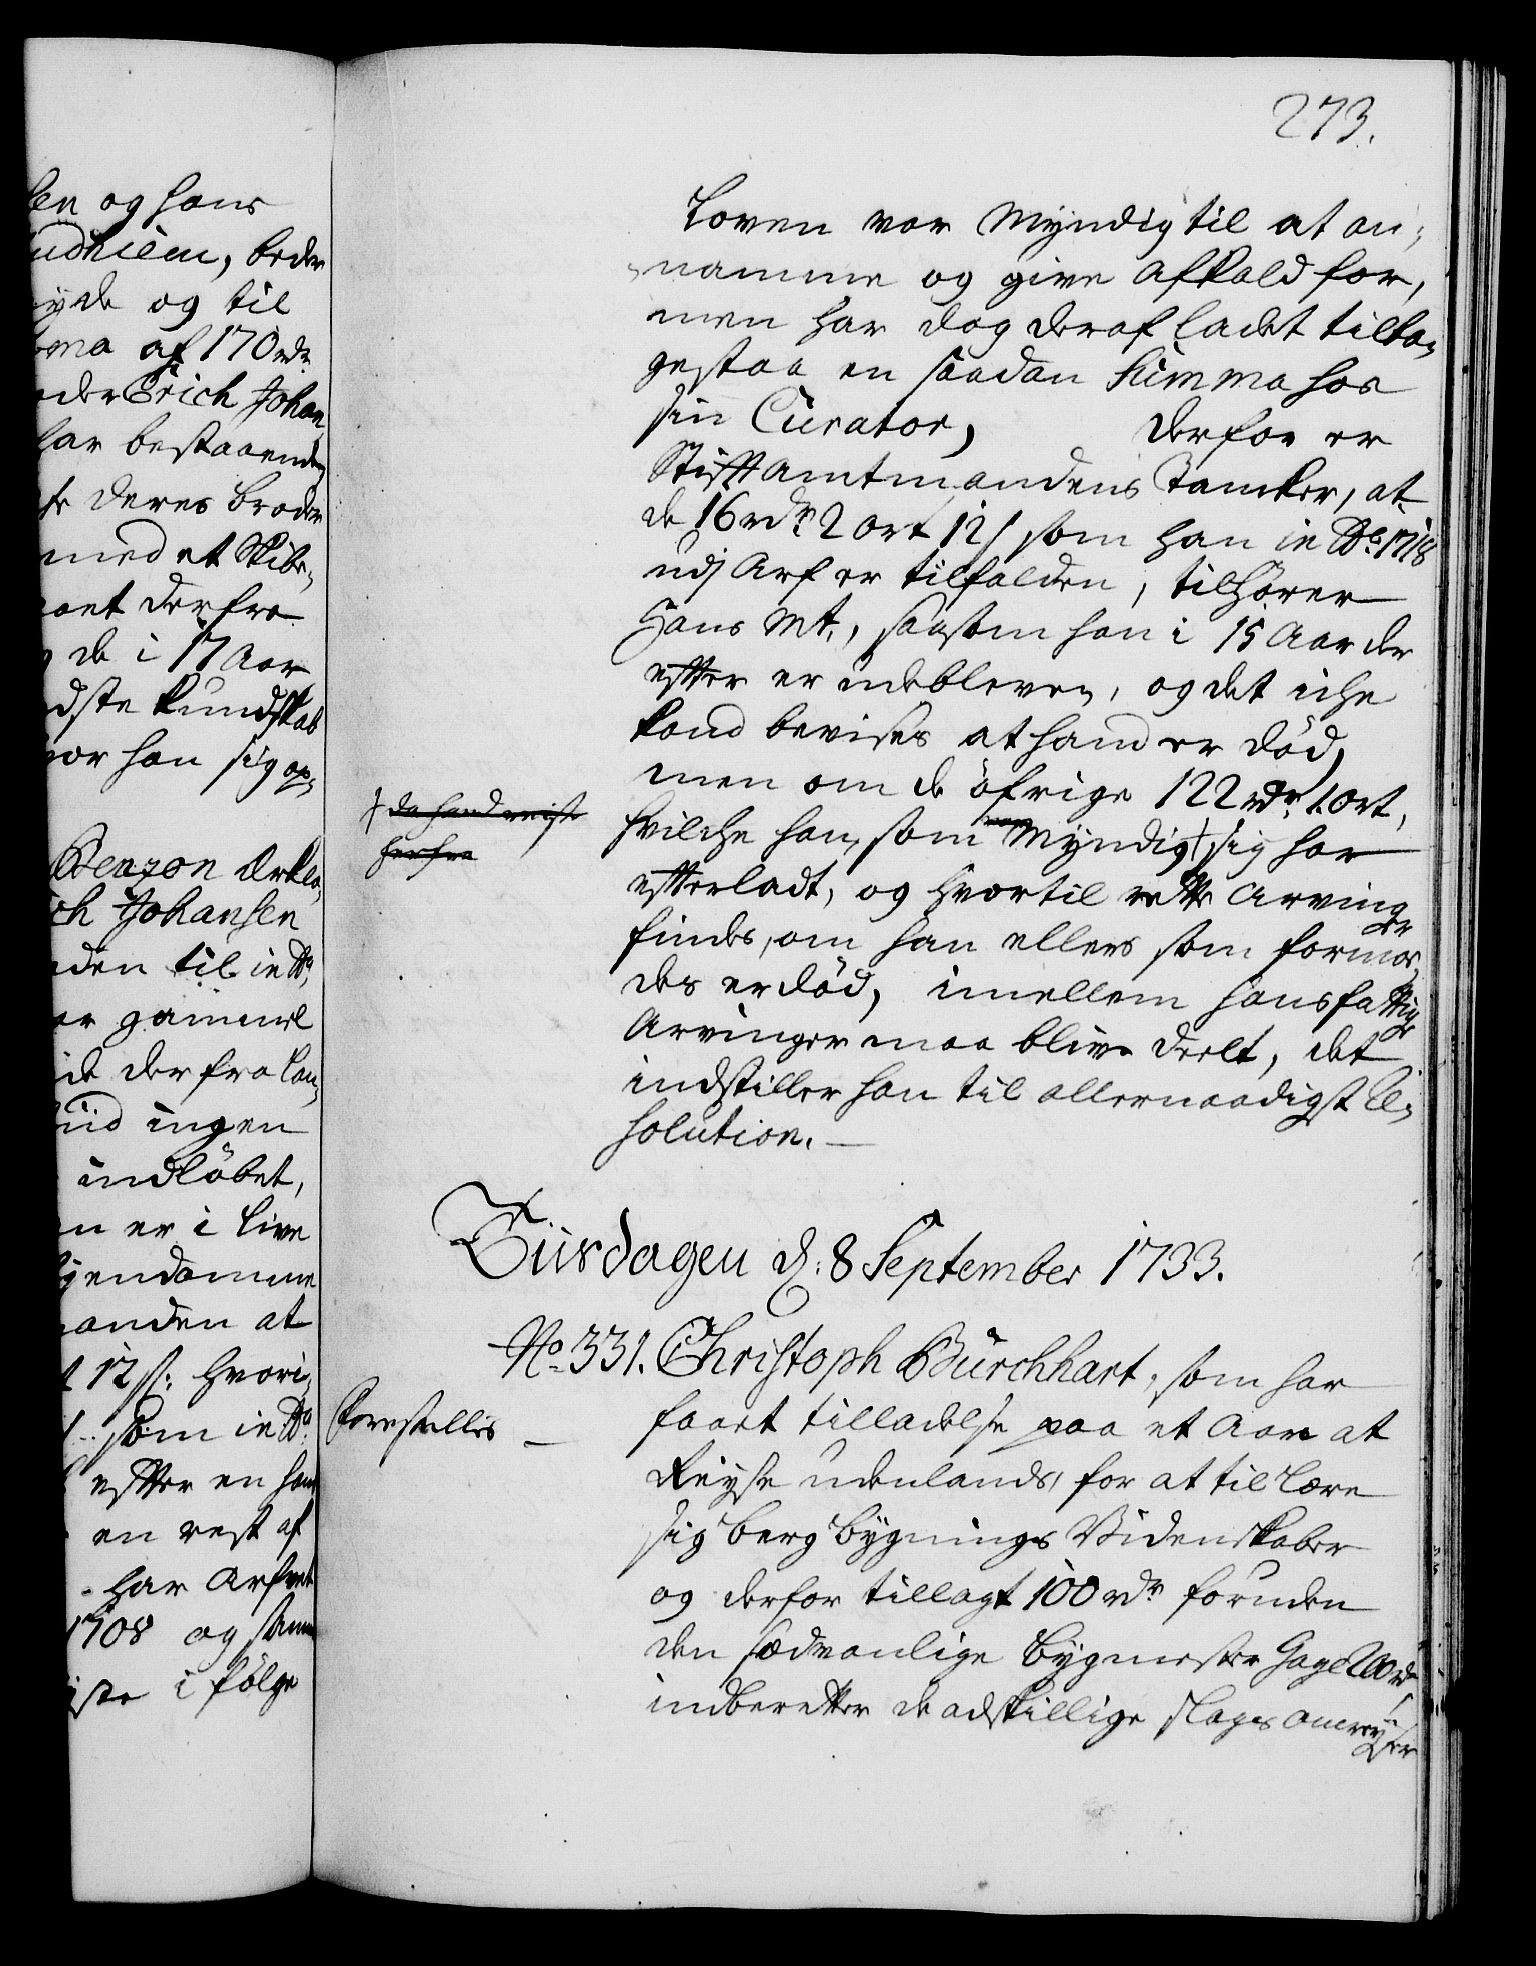 273.
len og hans
udhiem, beder
yde og til
ma af 170 rdr.
Erich Johan
har bestaaende
deres broder
med et Skibe,
derfra
de i 17 Aar
Kundskab
hvor han sig op,
Benzon
Johansen
til in Ao.
gammel
derfra
ingen
indløbet,
er i live
anden at
12 s: hvori,
som in Ao.
efter en
en rest af
har Arfvet
1708 og
i følge
Loven var Myndig til at an,
namme og give Afkald for,
men har dog deraf ladet tilba,
gestaa en saadan Summa hos
sin Curator, Derfor er
Stiftamtmandens Tancker, at
de 16 rdr. 2 ort 12 s som han in Ao. 1718
udj Arf er tilfalden, tilhører
Hans Mt., saasom han i 15 Aar der
efter er udebleven, og det iche
kand bevises at hand er død,
men om de øfrige 122 rdr. 1. ort,
† da hand reiste
herfra
hvilche han, som Myndig † sig har
efterladt, og hvortil rette Arvinger
findes, om han ellers som formo,
des er død, imellem hans fattige
Arvinger maa blive deelt, det
indstiller han til allernaadigst Re,
solution. —
Tiirsdagen d: 8 September 1733.
No. 331. Christoph Bürchhart, som har
Forestilles —
faaet tilladelse paa et Aar at
Reyse udenlands, for at tillære
sig berg bygnings Videnskaber
og derfor tillagt 100 rdr. foruden
den sædvanlige bygmester Gage 200 rdr
indberetter de adskillige slags